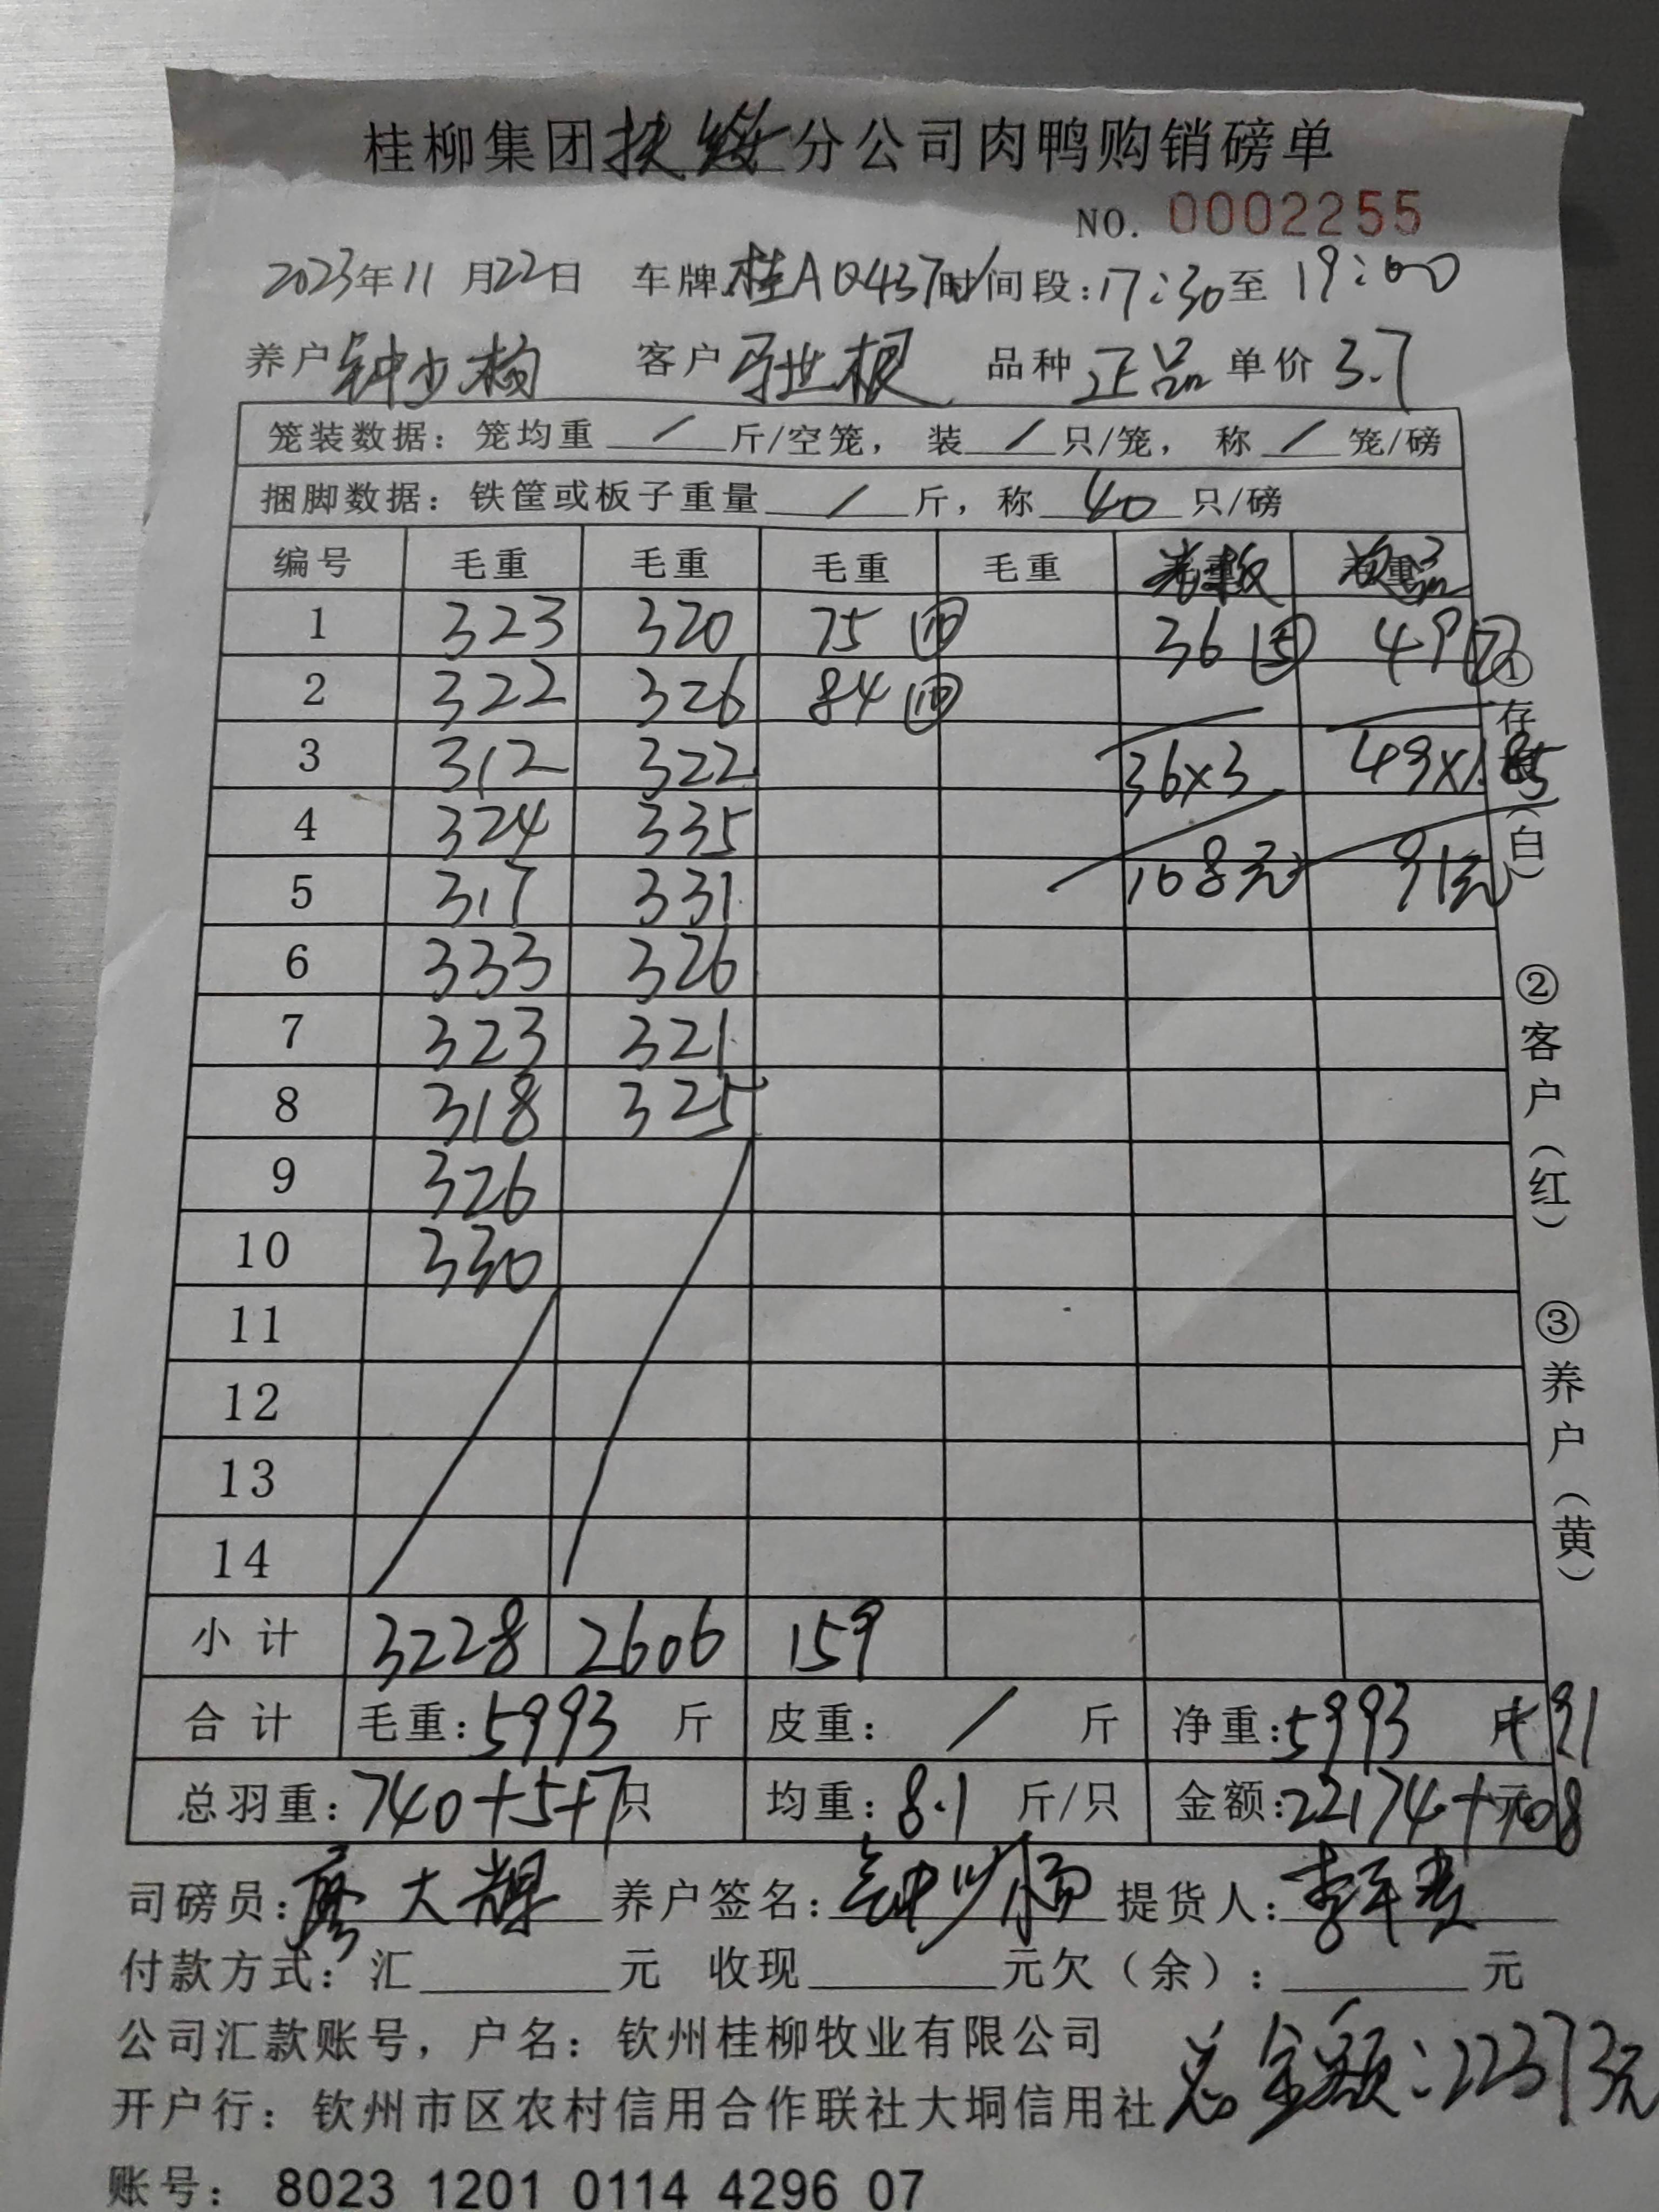 桂柳集团扶绥分公司肉鸭购销磅单
NO. 0002255
2023年11月22日 车牌:桂AQ437 时间段:17:30至19:00
养户 钟少杨 客户 世根 品种 正品 单价 3.7
笼装数据: 笼均重 / 斤/空笼, 装 / 只/笼, 称 / 笼/磅
捆脚数据: 铁筐或板子重量 / 斤, 称 40 只/磅
编号 毛重 毛重 毛重 毛重
1 323 320 75⑩ 36⑤ 49⑦
2 322 326 84⑩
3 312 322 36x3 49x1.85
4 324 335
5 317 331 108元 91元
6 333 326
7 323 321
8 318 325
9 326
10 330
11
12
13
14
小计 3228 2606 159
合计 毛重:5993 斤 皮重: / 斤 净重:5993 斤+91
总羽重:740+5+7只 均重:8.1 斤/只 金额:22174+元108
司磅员:廖大辉 养户签名:钟少杨 提货人:李
付款方式: 汇 元 收现 元欠(余): 元
公司汇款账号, 户名: 钦州桂柳牧业有限公司
总金额:22373元
开户行: 钦州市区农村信用合作联社大垌信用社
账号: 8023 1201 0114 4296 07
①存根(白)
②客户(红)
③养户(黄)